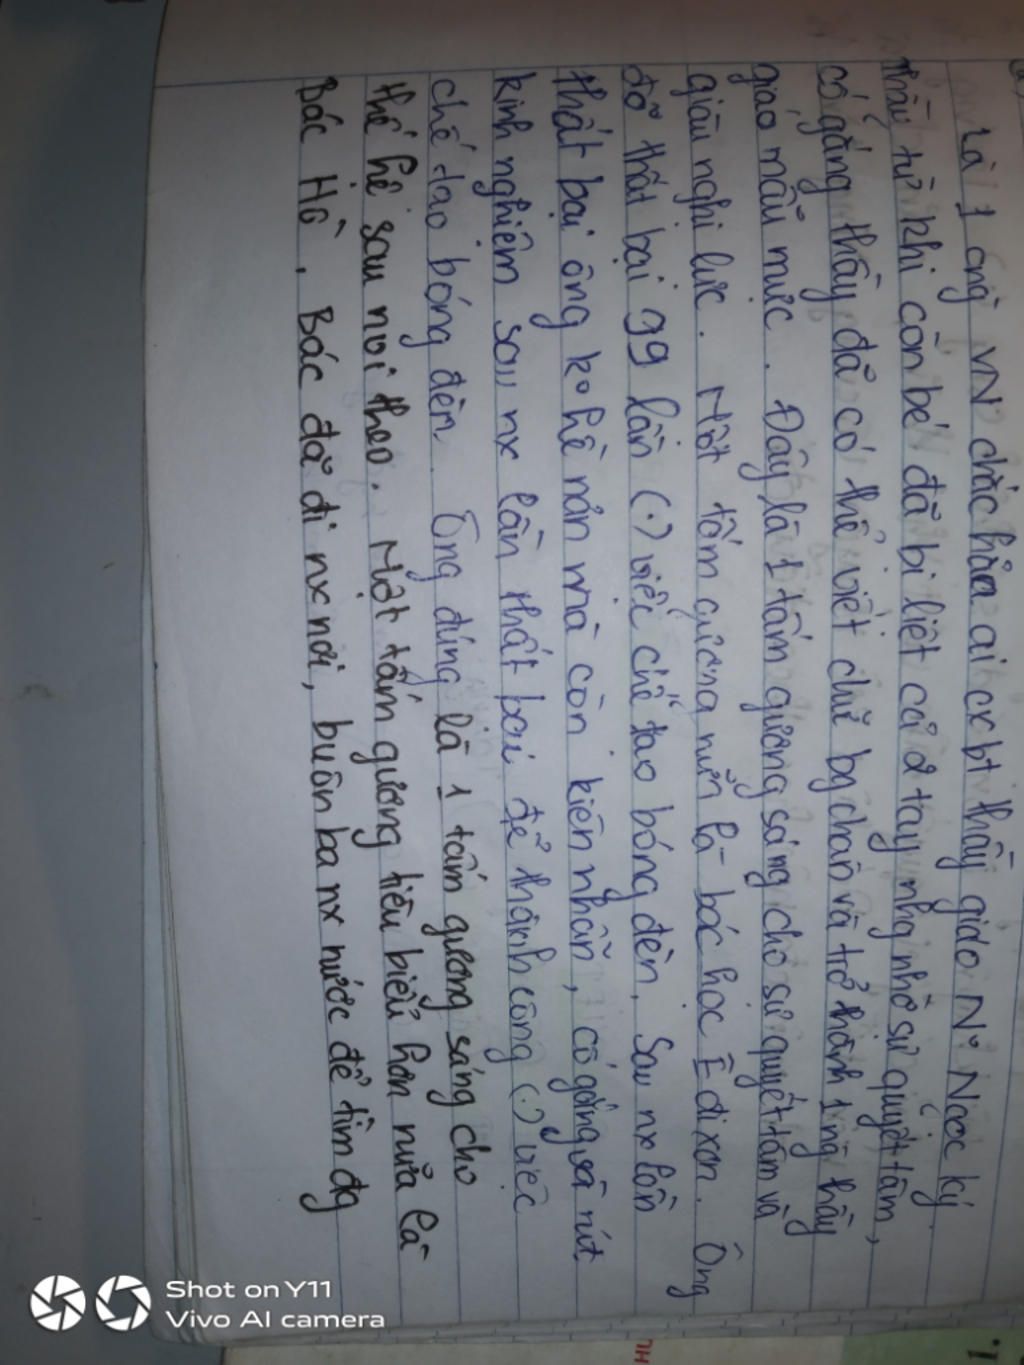 Là 1 ng VN chắc hẳn ai ck bt thầy giáo Ng Ngọc ký.
Thầy từ khi còn bé đã bị liệt cả 2 tay nhg nhờ sự quyết tâm,
cố gắng thầy đã có thể viết chữ bg chân và trở thành 1 ng thầy
giáo mẫu mực. Đây là 1 tấm gương sáng cho sự quyết tâm và
giàu nghị lực. Một tấm gương nữa là bác học Ê đi xơn. Ông
đã thất bại 99 lần (.) việc chế tạo bóng đèn. Sau nx lần
thất bại ông ko hề nản mà còn kiên nhẫn, cố gắng và rút
kinh nghiệm sau nx lần thất bại để thành công (.) việc
chế tạo bóng đèn. Ông đúng là 1 tấm gương sáng cho
thế hệ sau noi theo. Một tấm gương tiêu biểu hơn nữa là
Bác Hồ. Bác đã đi nx nơi, buôn ba nx nước để tìm đg
Shot on Y11
Vivo AI camera
1.